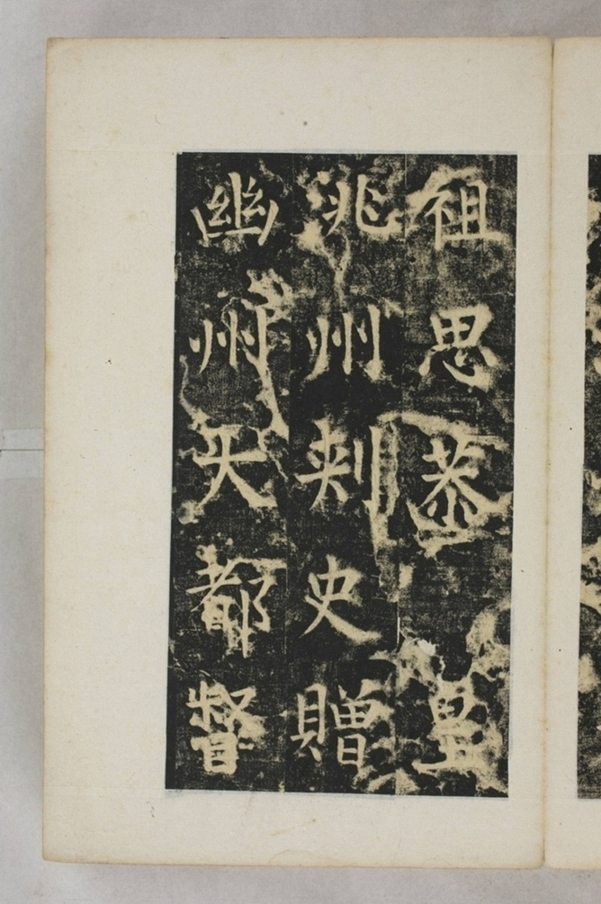 祖思恭皇
洮州刺史贈
幽州大都督